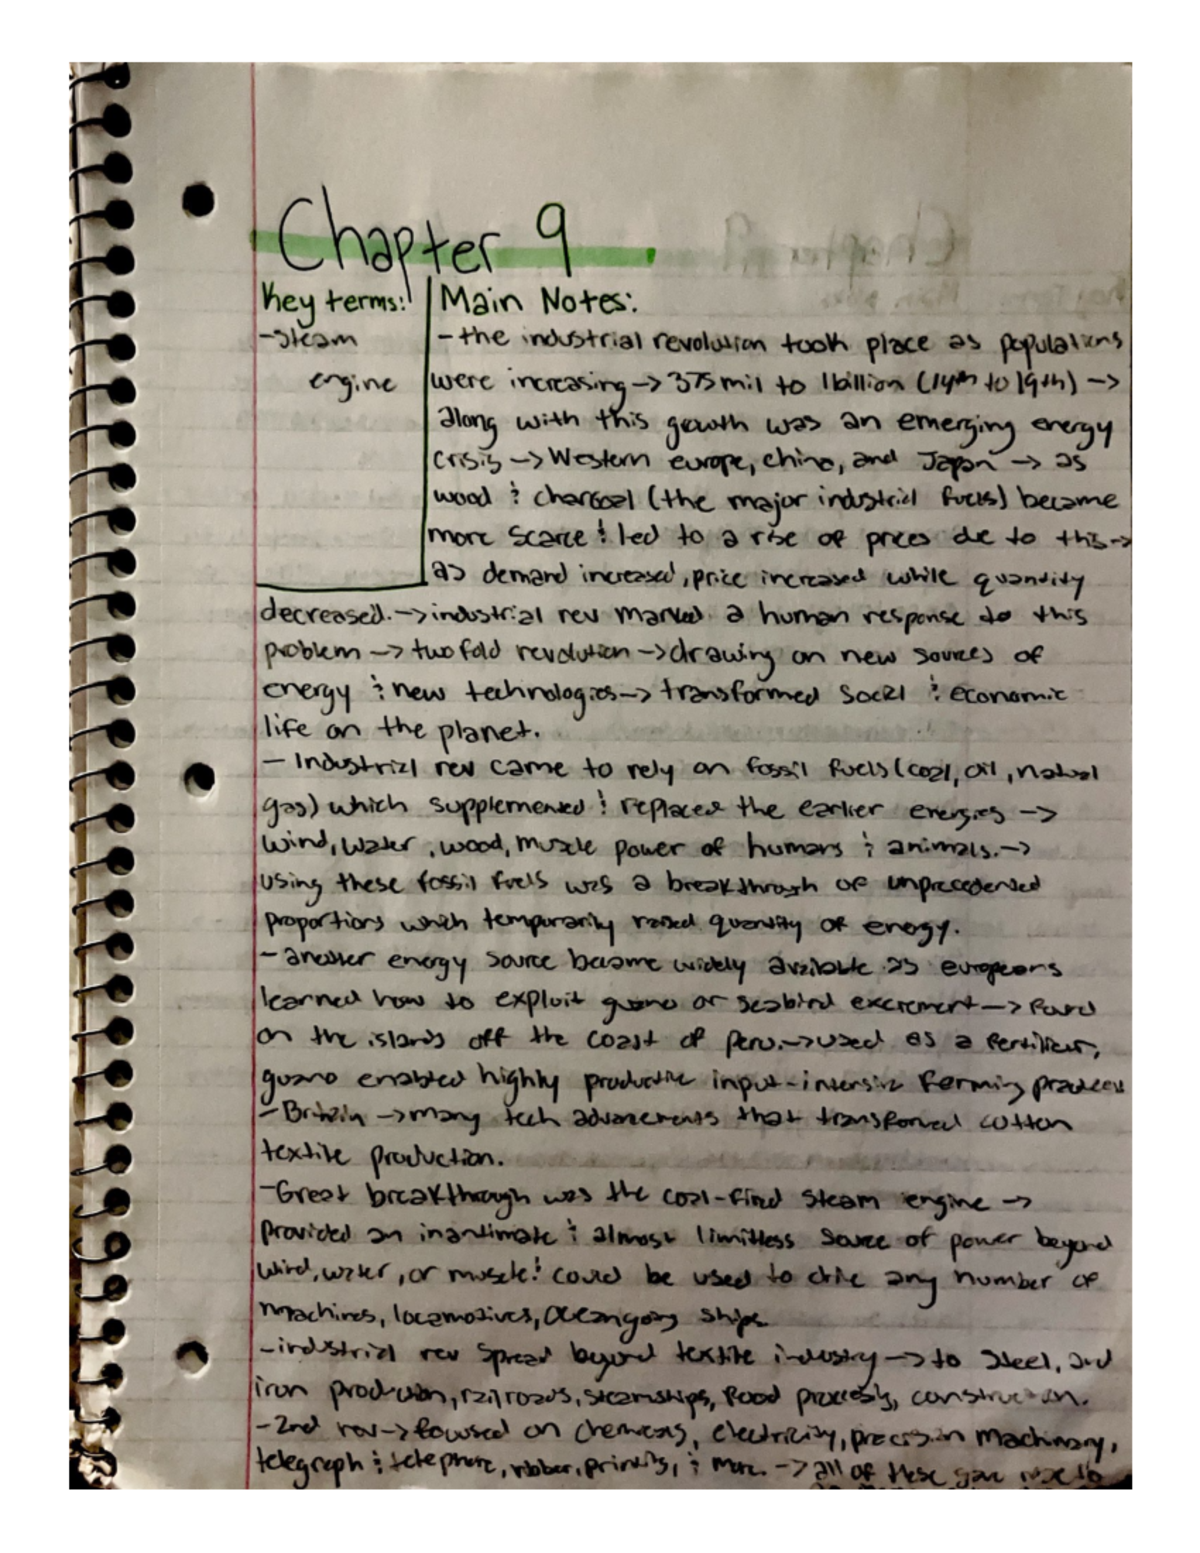 Chapter 9
Key terms:
-Steam
engine
Main Notes:
-the industrial revolution took place as populations
were increasing -> 375mil to 1billion (14th to 19th) ->
along with this growth was an emerging energy
crisis -> Western europe, china, and Japan -> as
wood & charcoal (the major industrial fuels) became
more scarce & led to a rise of prices due to this ->
as demand increased, price increased while quantity
decreased. -> industrial rev marked a human response to this
problem -> twofold revolution -> drawing on new sources of
energy & new technologies -> transformed social & economic
life on the planet.
- Industrial rev came to rely on fossil fuels (coal, oil, natural
gas) which supplemented & replaced the earlier energies ->
wind, water, wood, muscle power of humans & animals. ->
using these fossil fuels was a breakthrough of unprecedented
proportions which temporarily raised quantity of energy.
- another energy source became widely available as europeans
learned how to exploit guano or seabird excrement -> found
on the islands off the coast of peru. -> used as a fertilizer,
guano enabled highly productive input-intensive farming practices
- Britain -> many tech advancements that transformed cotton
textile production.
-Great breakthrough was the coal-fired steam engine ->
provided an inanimate & almost limitless source of power beyond
wind, water, or muscle & could be used to drive any number of
machines, locomotives, oceangoing ships
-industrial rev spread beyond textile industry -> to steel, and
iron production, railroads, steamships, food processing, construction.
-2nd rev -> focused on chemicals, electricity, precision machinery,
telegraph & telephone, rubber, printing, & more. -> all of these gave rise to